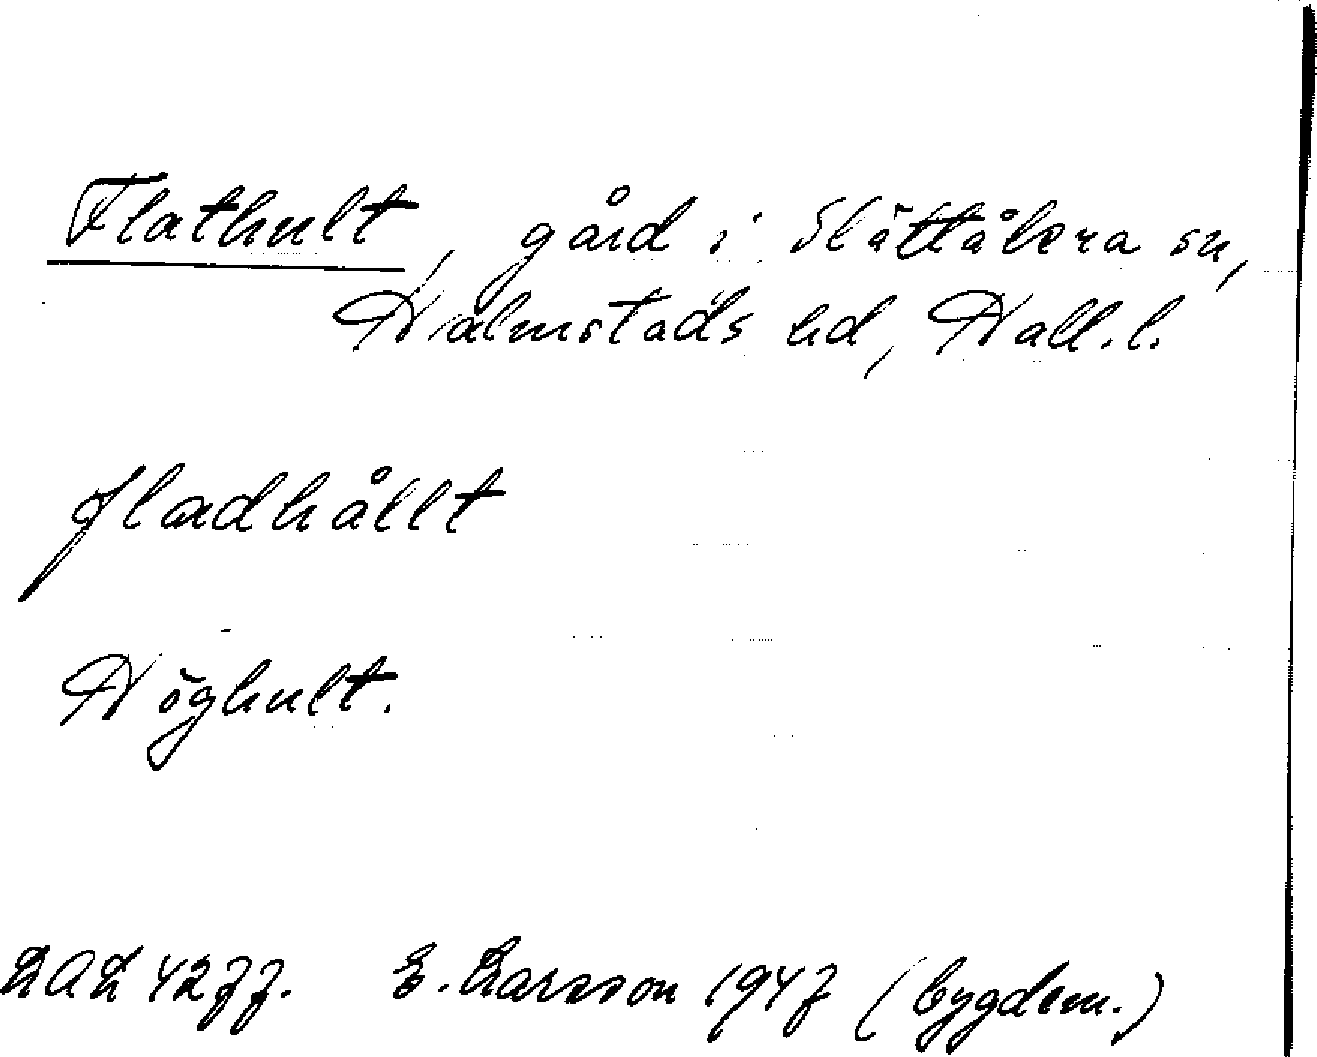 Flathult, gård i Slättåkra sn,
Halmstads hd, Hall. l.
fladhållt
Höghult.
DAL 4277. E. Larsson 1947 (bygdem.)